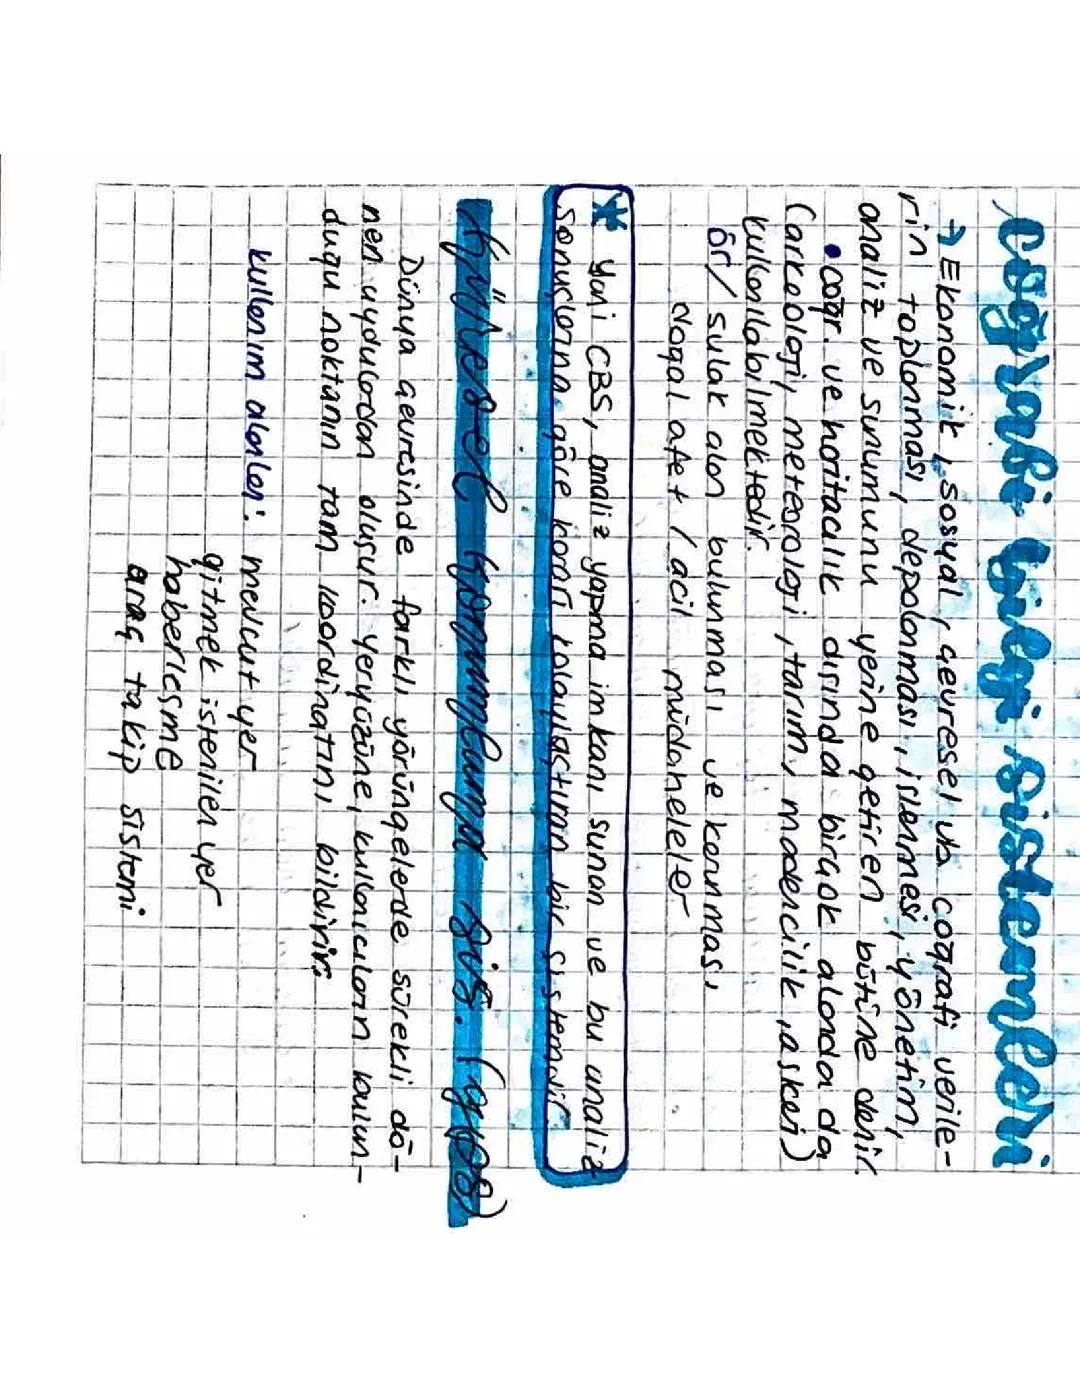 Coğrafi bilgi sistemleri
→ Ekonomik, sosyal, çevresel vb coğrafi verile-
rin toplanması, depolanması, işlenmesi, yönetim,
analiz ve sunumunu yerine getiren bütüne denir
• coğr. ve haritacılık dışında birçok alanda da
(arkeoloji, meteoroloji, tarım, madencilik, askeri)
kullanılabilmektedir.
ör/ sulak alan bulunması ve korunması
doğal afet / acil müdaheleler
* Yani CBS, analiz yapma imkanı sunan ve bu analiz
sonuçlarına göre karar kolaylaştıran bir sistemdir
Küresel konumlama sis. (gps)
Dünya çevresinde farklı yörüngelerde sürekli dö-
nen uydulardan oluşur. Yeryüzüne, kullanıcıların bulun-
duğu noktanın tam koordinatını bildirir.
kullanım alanları: mevcut yer
gitmek istenilen yer
haberleşme
araç takip sistemi